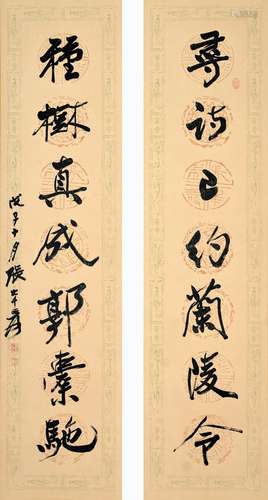 尋詩已約蘭陵令
種樹真成郭橐駞
戊子十月張大千爰